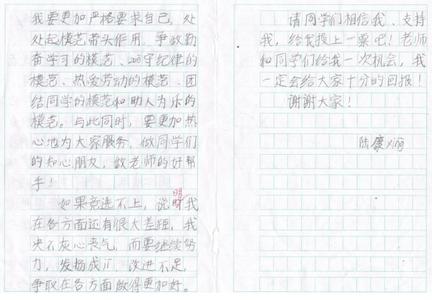 我要更加严格要求自己，处
处起模范带头作用。争做勤
奋学习的模范、遵守纪律的
模范、热爱劳动的模范、团
结同学的模范和助人为乐的
模范。与此同时，要更加热
心地为大家服务，做同学们
的知心朋友，做老师的好帮
手！
如果竞选不上，说明我
在各方面还有很大差距，我
决不灰心丧气，而要继续努
力，发扬成汇，改进不足，
争取在各方面做得更加好。
请同学们相信我、支持
我，给我投上一票吧！老师
和同学们给我一次机会，我
一定会给大家十分的回报！
谢谢大家！
陆康